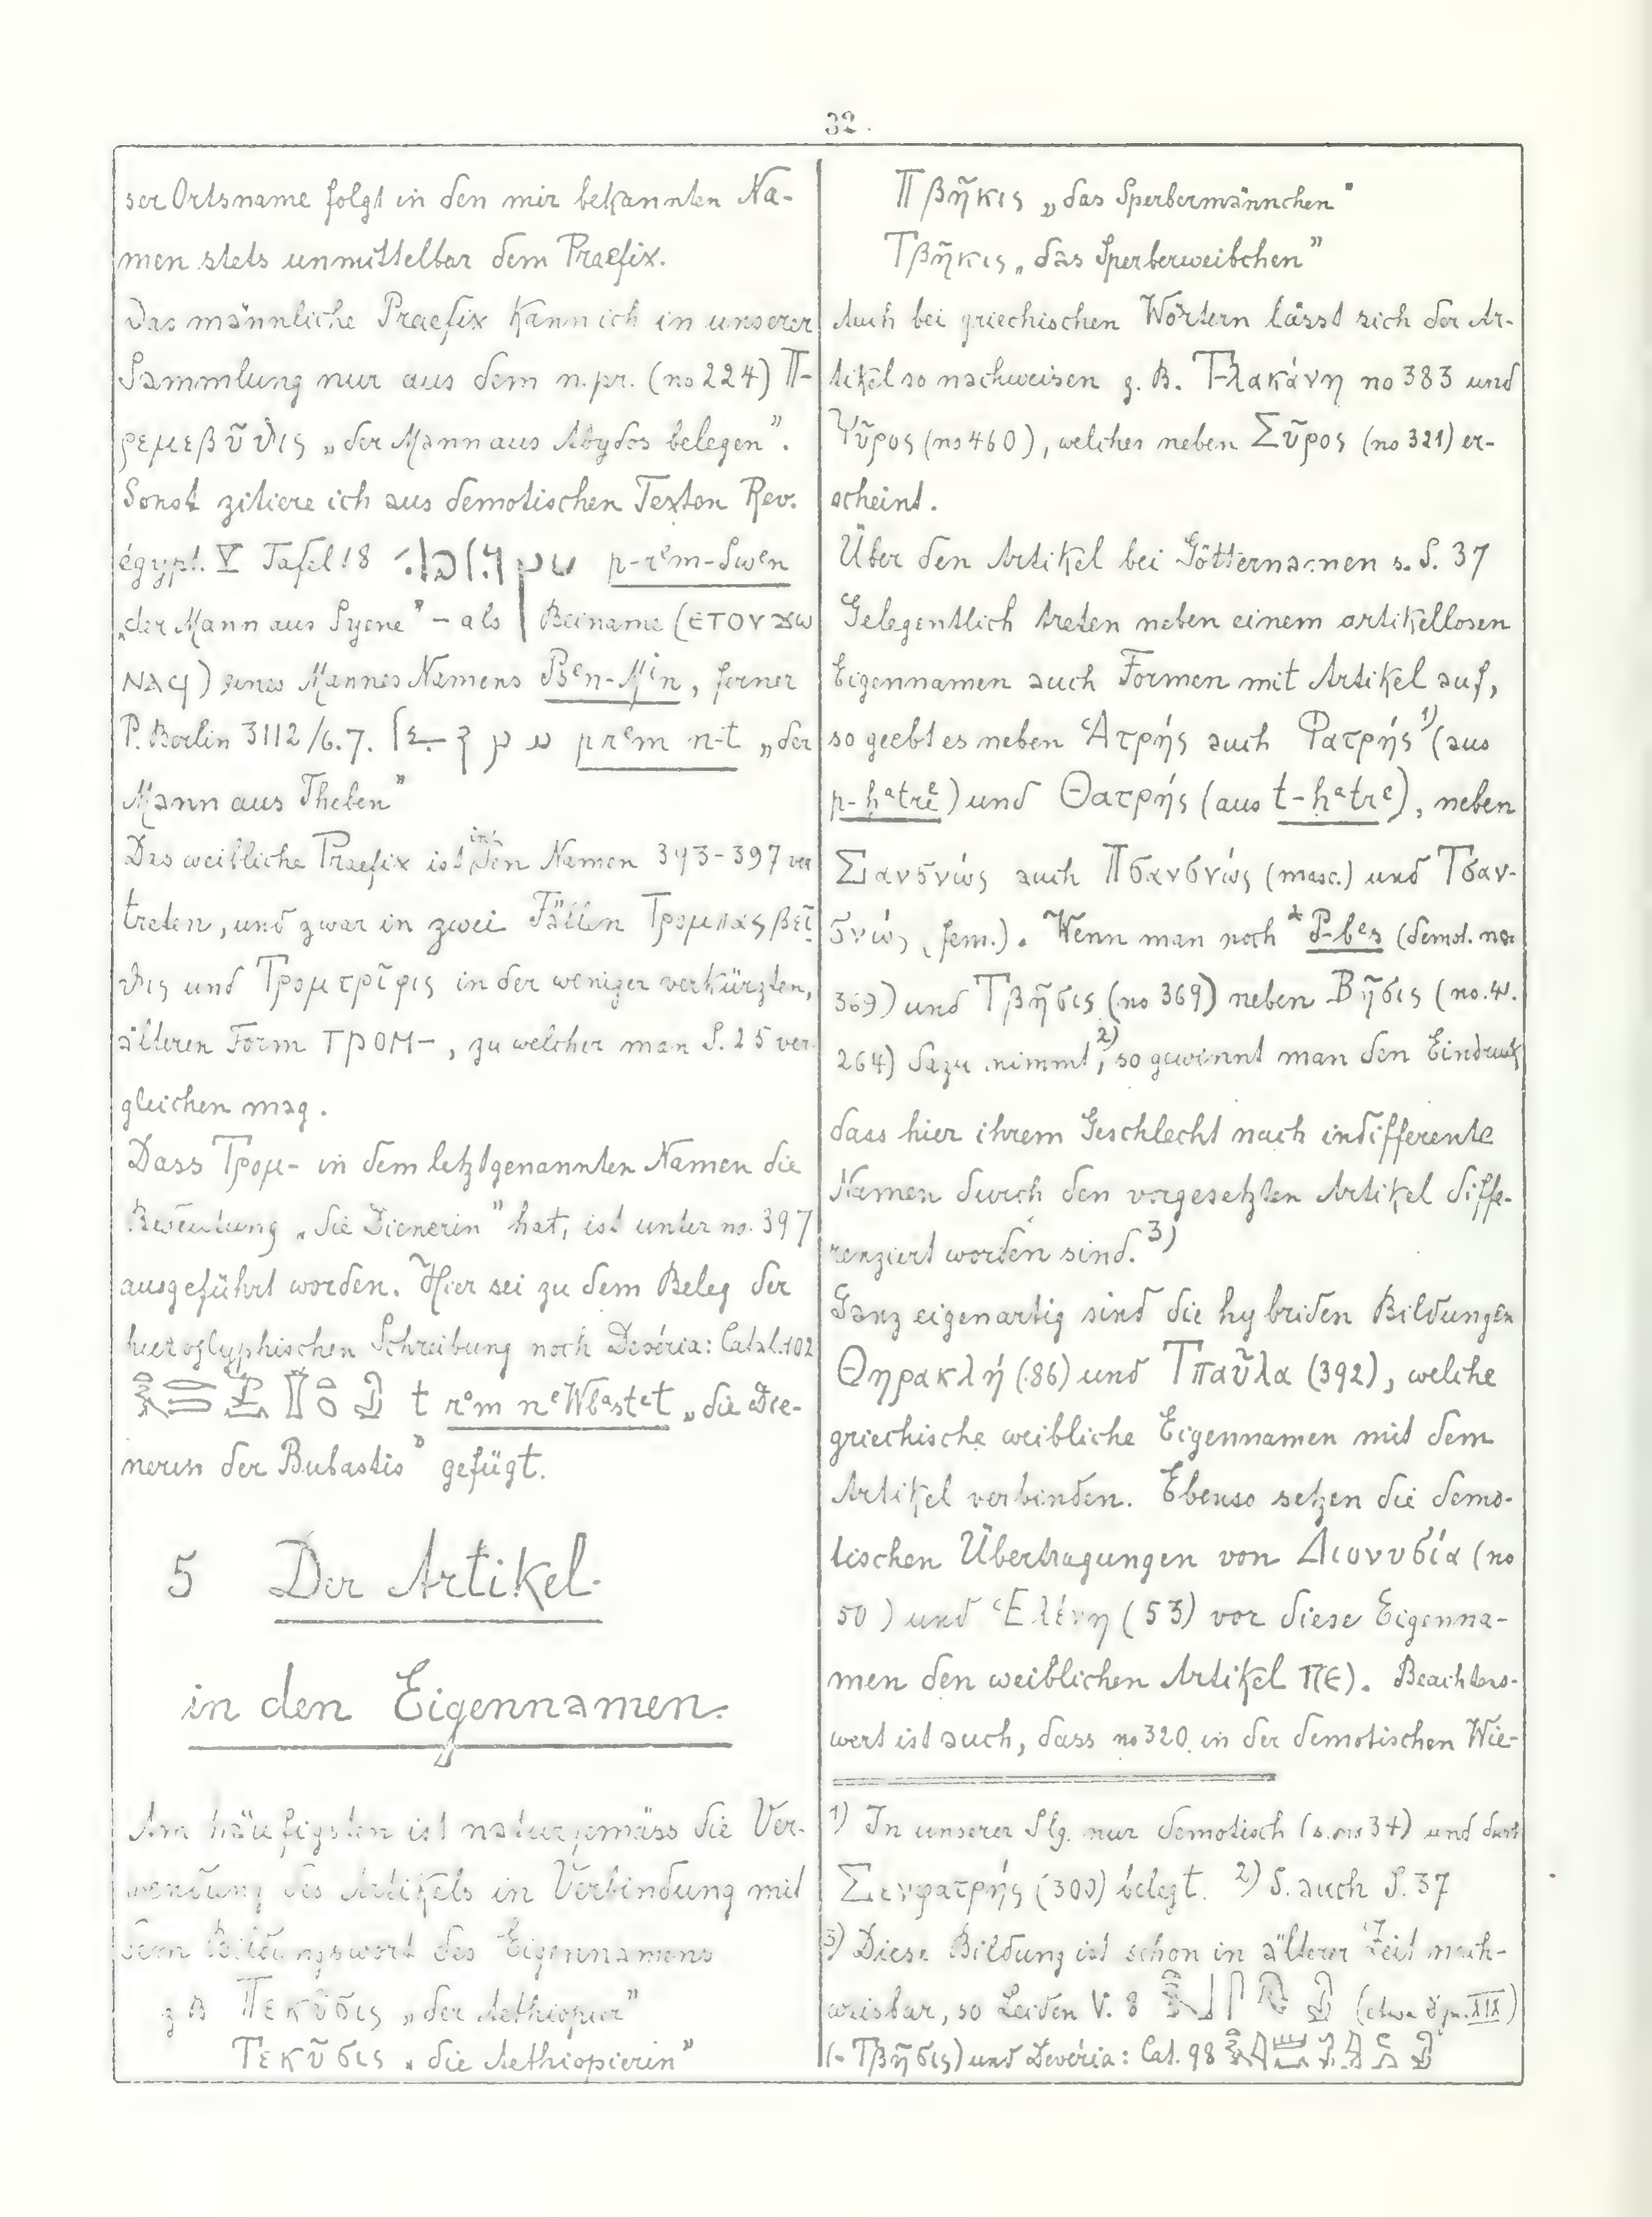 32.
ser Ortsname folgt in den mir bekannten Na-
men stets unmittelbar dem Praefix.
Das männliche Praefix kann ich in unserer
Sammlung nur aus dem n.pr. (no 224) Π-
ρεμεβῦϑις „der Mann aus Abydos belegen”.
Sonst zitiere ich aus demotischen Texten Rev.
égypt. V Tafel 18 p-rem-Swen
„der Mann aus Syene” – als Beiname (ⲉⲧⲟⲩϫⲱ
ⲛⲁϥ) eines Mannes Namens Psen-Min, ferner
P. Berlin 3112/6.7. prem n-t „der
Mann aus Theben”
Das weibliche Praefix ist in den Namen 393-397 ver
treten, und zwar in zwei Fällen Τρομπαςβεῖ
ϑις und Τρομτρῖφις in der weniger verkürzten,
älteren Form ⲧⲣⲟⲙ-, zu welcher man S. 25 ver
gleichen mag.
Dass Τρομ- in dem letztgenannten Namen die
Bedeutung „die Dienerin” hat, ist unter no. 397
ausgeführt worden. Hier sei zu dem Beleg der
hieroglyphischen Schreibung noch Devéria: Catal. 102
t rem ne Wbastet „die Die-
nerin der Bubastis” gefügt.
5 Der Artikel
in den Eigennamen.
Am häufigsten ist naturgemäss die Ver-
wendung des Artikels in Verbindung mit
dem Bildungswort des Eigennamens
z B Πεκῦσις „der Aethiopier”
Τεκῦσις „die Aethiopierin”
Πβῆκις „das Sperbermännchen”
Τβῆκις „das Sperberweibchen”
Auch bei griechischen Wörtern lässt sich der Ar-
tikel so nachweisen z. B. Τ-λακάνη no 383 und
Ψῦρος (no 460), welches neben Σῦρος (no 321) er-
scheint.
Über den Artikel bei Götternamen s. S. 37
Gelegentlich treten neben einem artikellosen
Eigennamen auch Formen mit Artikel auf,
so geebt es neben Ἁτρής auch Φατρής 1) (aus
p-hatre) und Θατρής (aus t-hatre), neben
Σανσνώς auch Πσανσνώς (masc.) und Τσαν-
σνώς (fem.). Wenn man noch * P-bes (demot. no.
369) und Τβῆσις (no 369) neben Βῆσις (no.
264) dazu nimmt 2), so gewinnt man den Eindruck
dass hier ihrem Geschlecht nach indifferente
Namen durch den vorgesetzten Artikel diffe-
renziert worden sind. 3)
Ganz eigenartig sind die hybriden Bildungen
Θηρακλή (86) und Τπαῦλα (392), welche
griechische weibliche Eigennamen mit dem
Artikel verbinden. Ebenso setzen die demo-
tischen Übertragungen von Διονυσία (no
50) und Ἑλένη (53) vor diese Eigenna-
men den weiblichen Artikel ⲡⲉ). Beachtens-
wert ist auch, dass no 320 in der demotischen Wie-
1) In unserer Slg. nur demotisch (s. no 34) und durch
Σενφατρής (300) belegt. 2) S. auch S. 37
3) Diese Bildung ist schon in älterer Zeit nach-
weisbar, so Leiden V. 8 (etwa Dyn. XIX)
(= Τβῆσις) und Devéria: Cat. 98